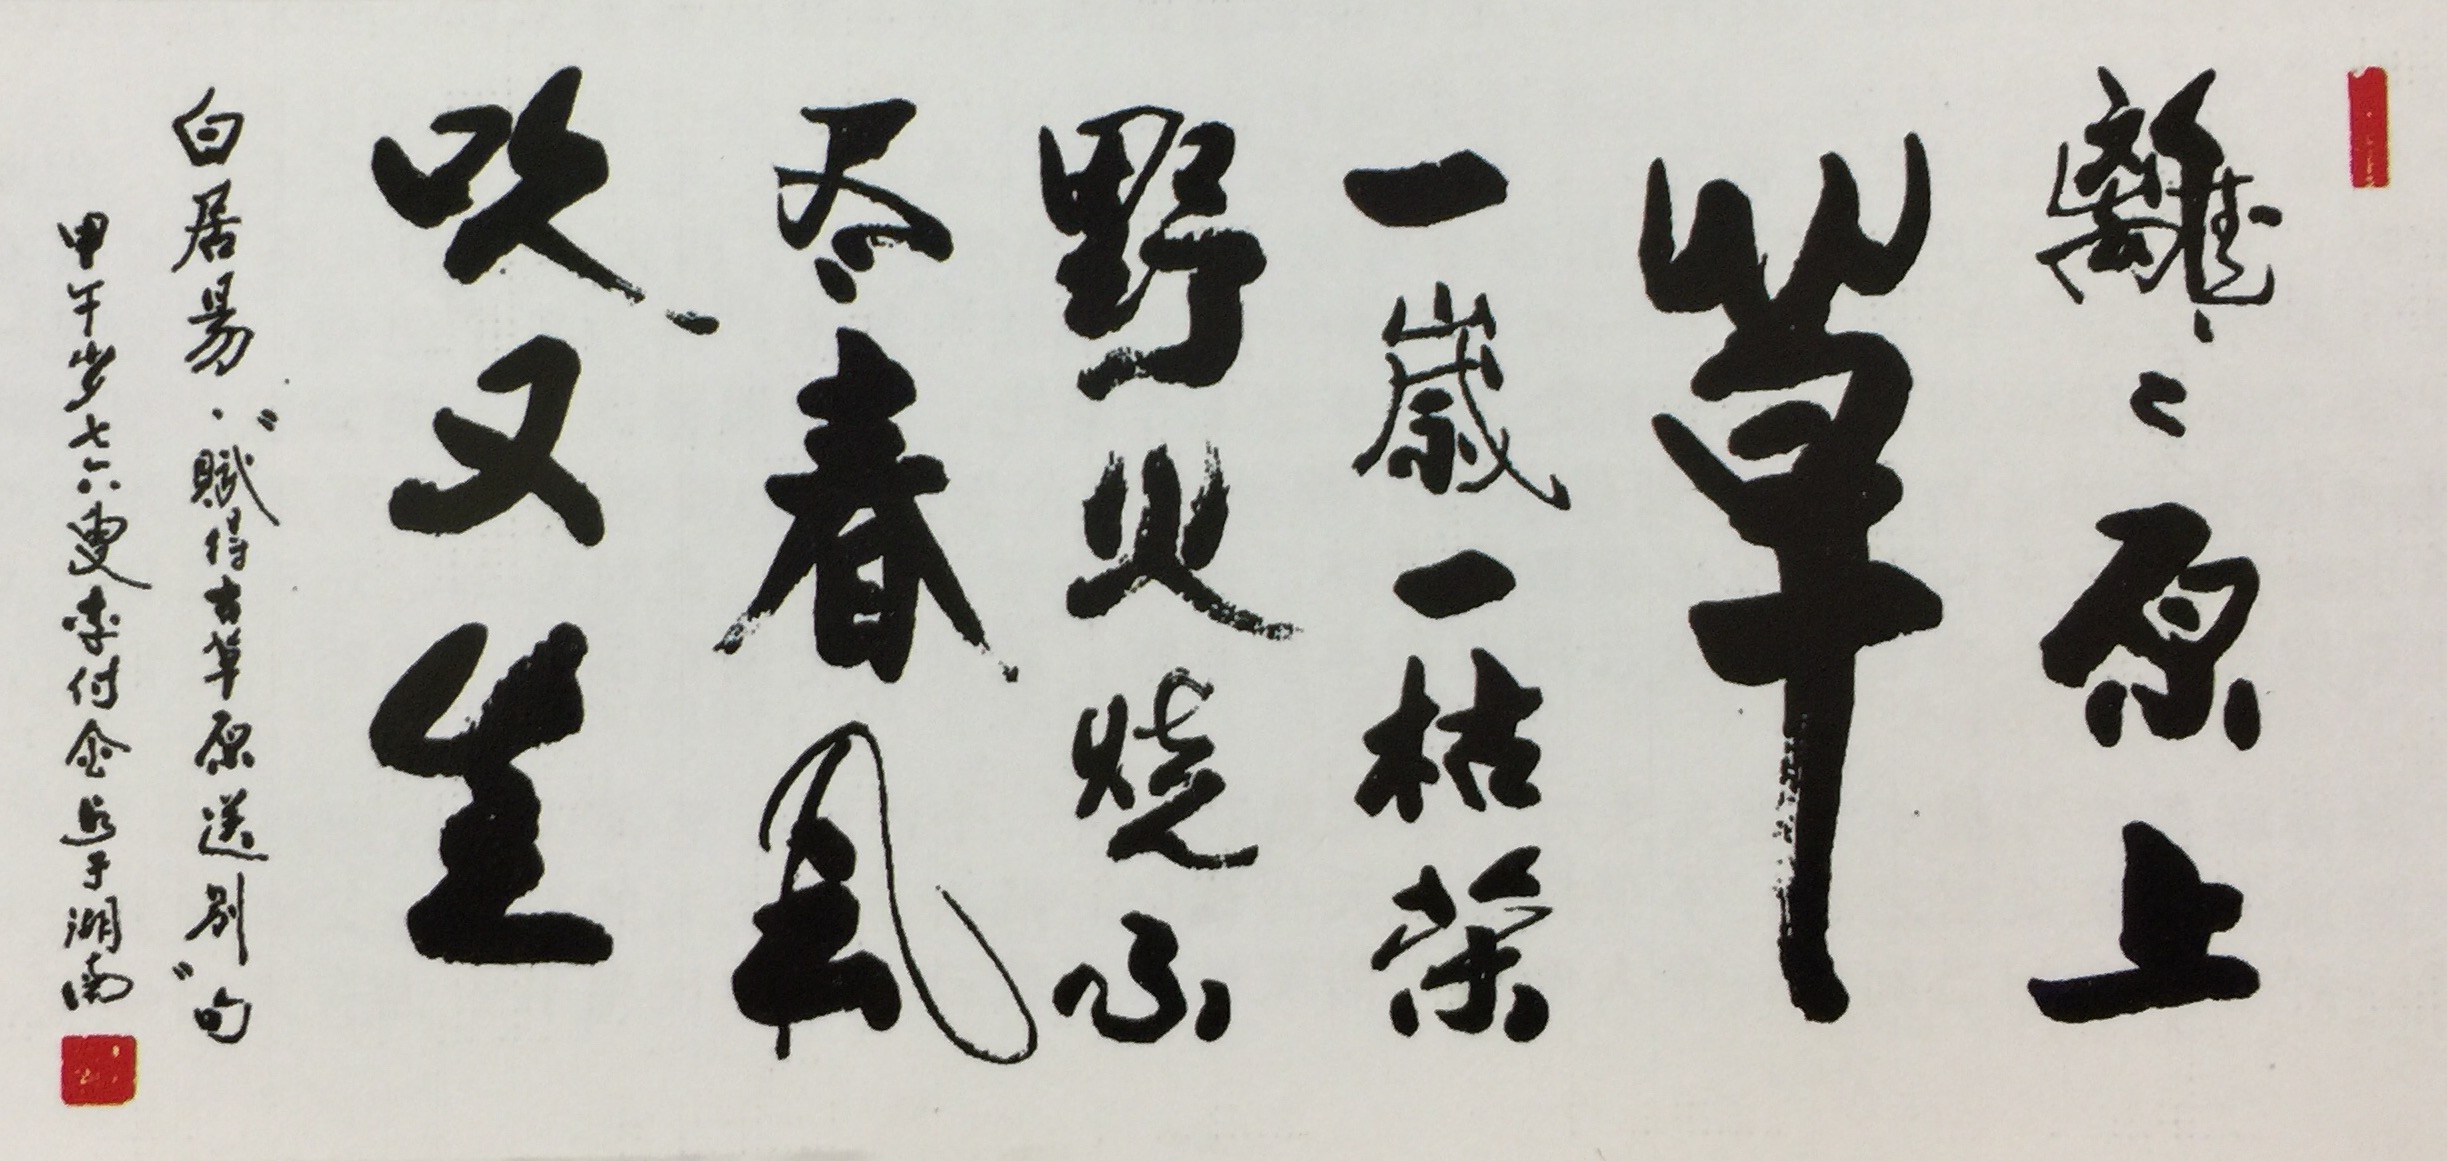 離〻原上
草
一歲一枯榮
野火燒不
尽春風
吹又生
白居易·"賦得古草原送别"句
甲午岁七六叟李付金 于湖南